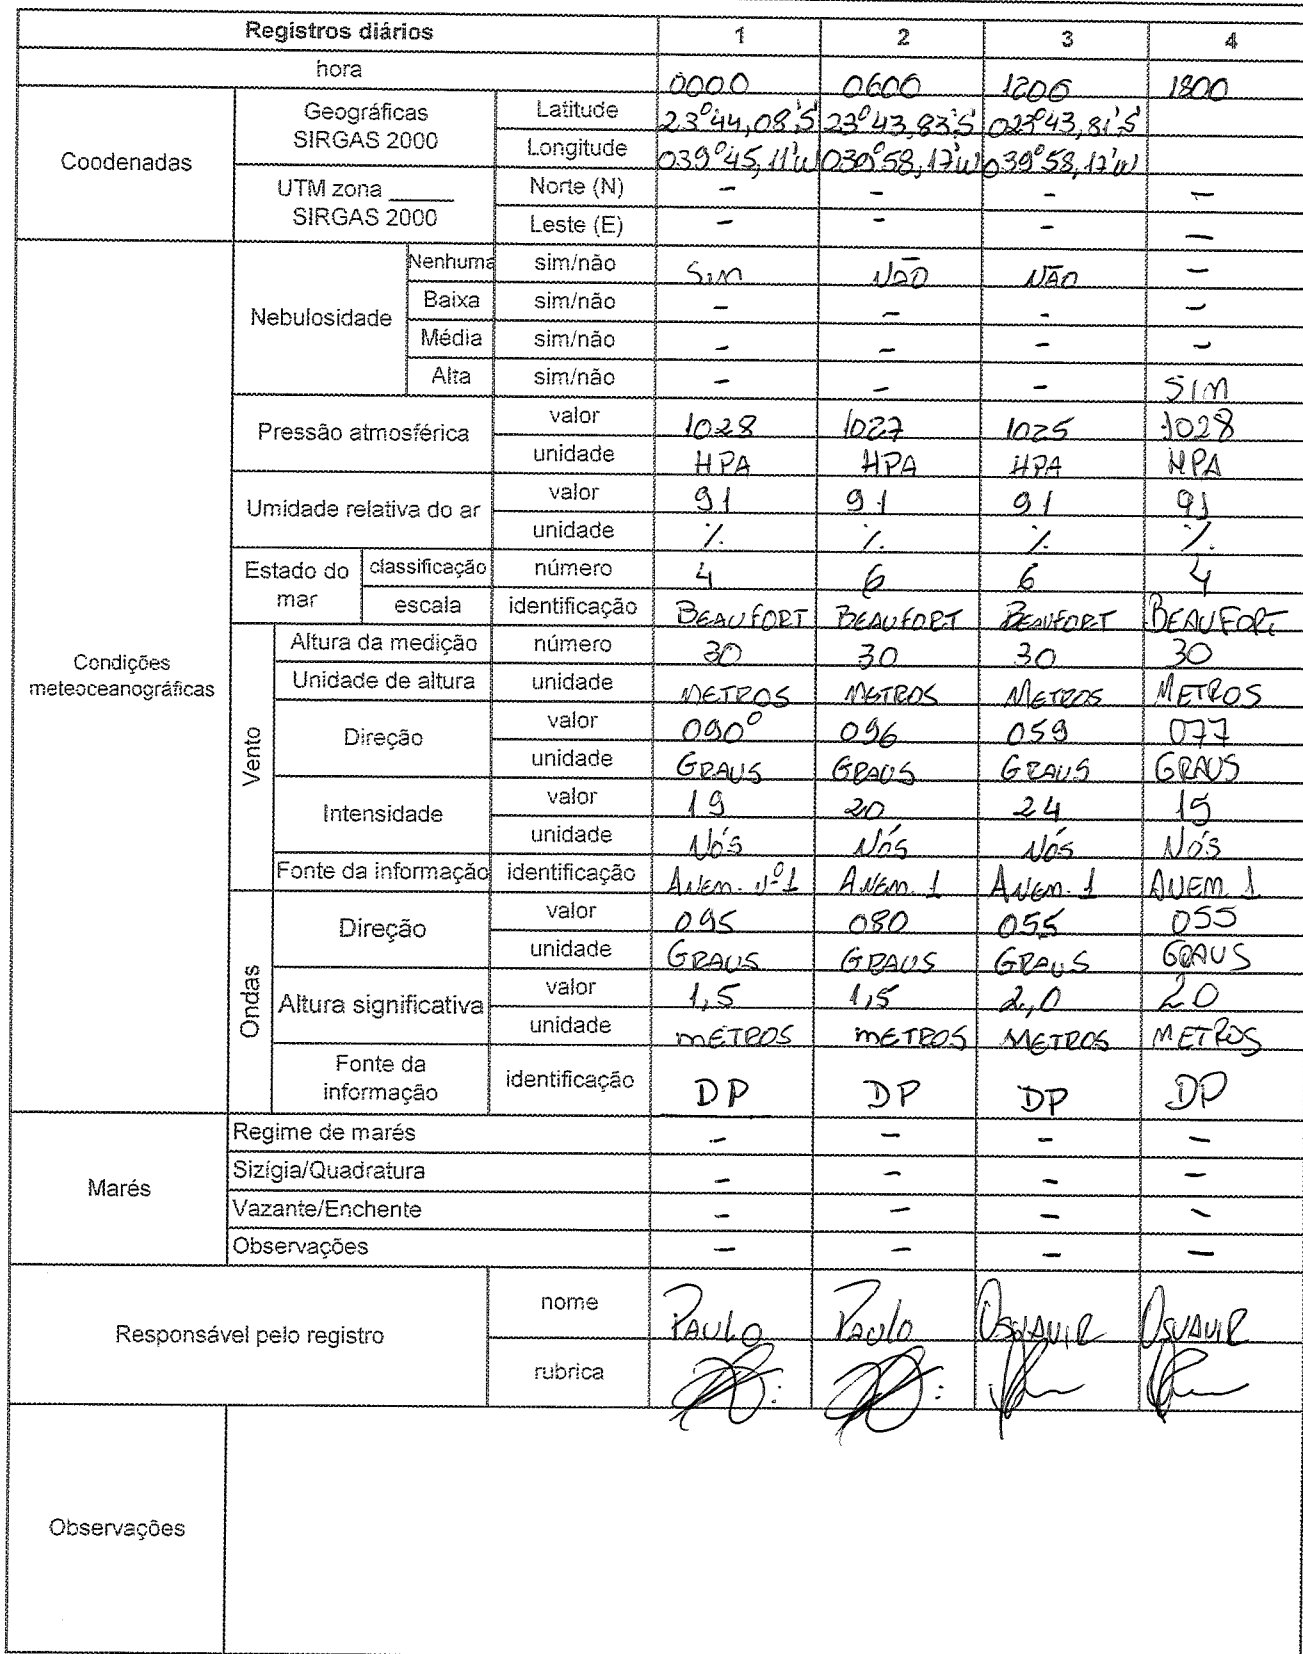 Registros diários 1 2 3 4
hora 0000 0600 1200 1800
Coodenadas Geográficas SIRGAS 2000 Latitude 23°44,08'S 23°43,83'S 023°43,81'S
Longitude 039°45,11'W 039°58,17'W 039°58,17'W
UTM zona _____ SIRGAS 2000 Norte (N) - - - -
Leste (E) - - - -
Condições meteoceanográficas Nebulosidade Nenhuma sim/não Sim NÃO NÃO -
Baixa sim/não - - - -
Média sim/não - - - -
Alta sim/não - - - SIM
Pressão atmosférica valor 1028 1027 1025 1028
unidade HPA HPA HPA HPA
Umidade relativa do ar valor 91 91 91 91
unidade % % % %
Estado do mar classificação número 4 6 6 4
escala identificação BEAUFORT BEAUFORT BEAUFORT BEAUFORT
Vento Altura da medição número 30 30 30 30
Unidade de altura unidade METROS METROS METROS METROS
Direção valor 090° 096 059 077
unidade GRAUS GRAUS GRAUS GRAUS
Intensidade valor 19 20 24 15
unidade Nós Nós Nós Nós
Fonte da informação identificação ANEM. Nº1 ANEM. 1 ANEM. 1 ANEM. 1
Ondas Direção valor 095 080 055 055
unidade GRAUS GRAUS GRAUS GRAUS
Altura significativa valor 1,5 1,5 2,0 2.0
unidade METROS METROS METROS METROS
Fonte da informação identificação DP DP DP DP
Marés Regime de marés - - - -
Sizígia/Quadratura - - - -
Vazante/Enchente - - - -
Observações - - - -
Responsável pelo registro nome PAULO PAULO OSVANIR OSVANIR
rubrica
Observações